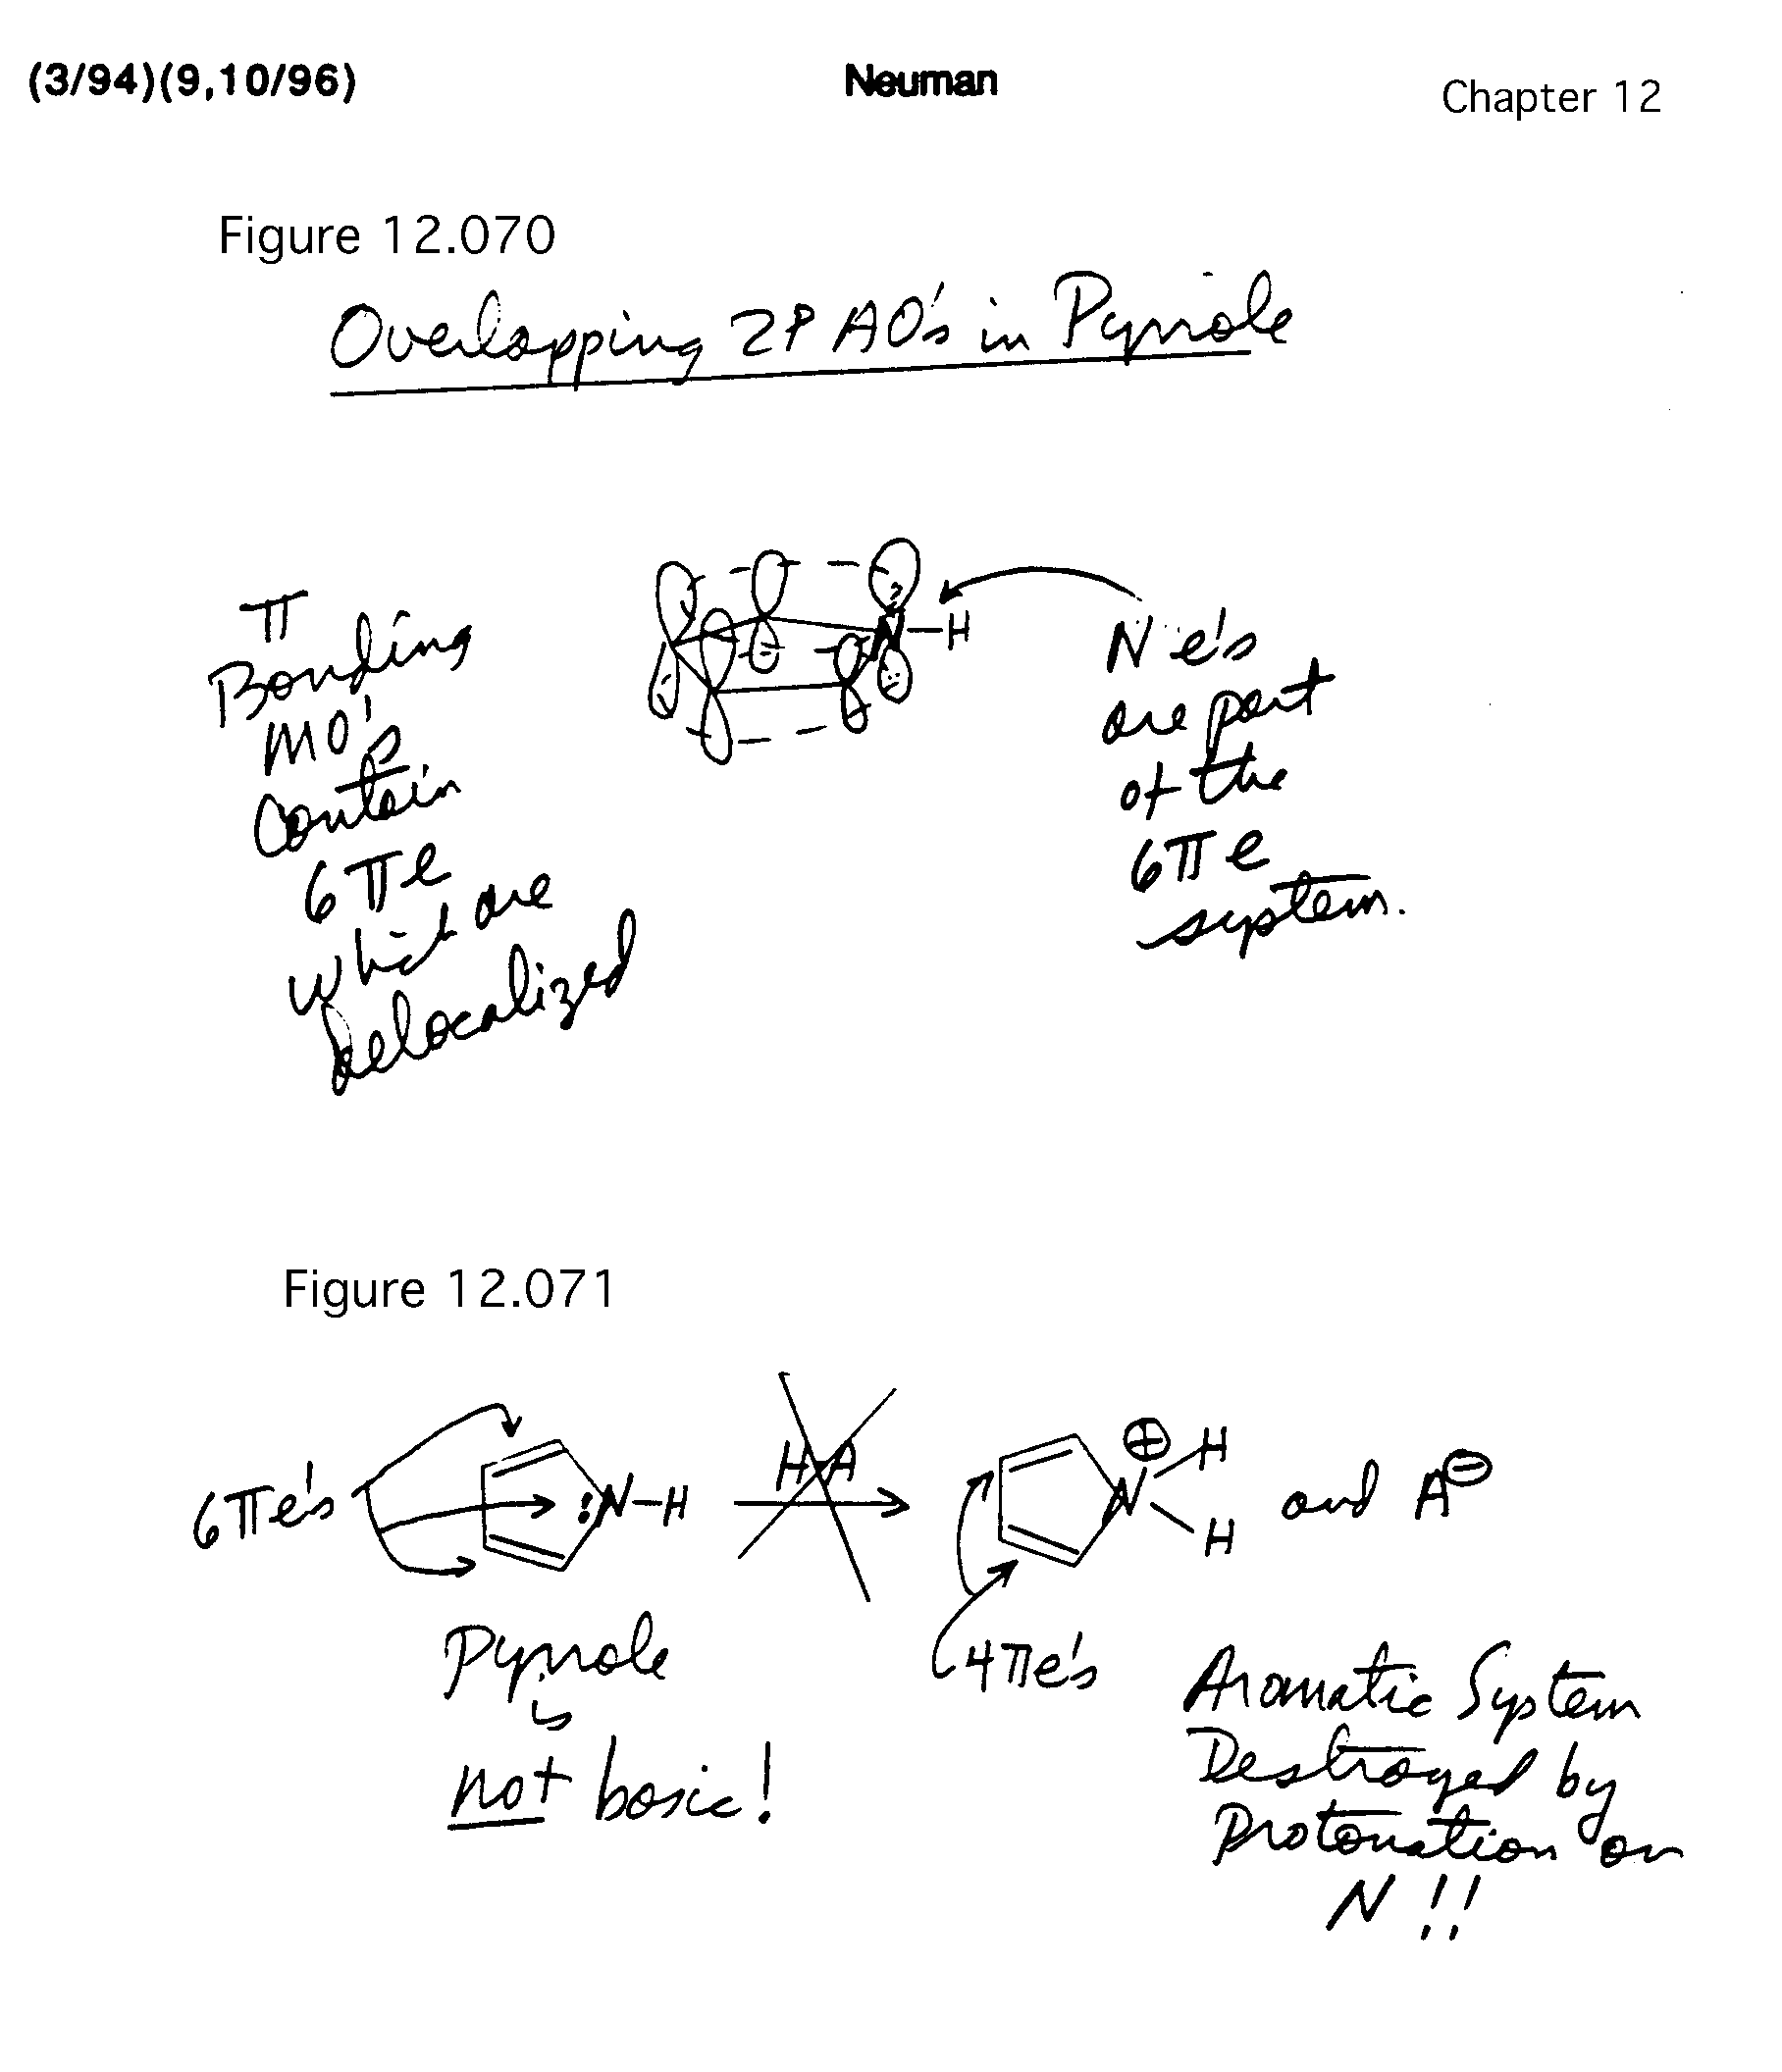 (3/94)(9,10/96) Neuman Chapter 12
Figure 12.070
Overlapping 2P AO's in Pyrrole
π
Bonding
MO's
Contain
6πe
which are
delocalized
N-H
N e's
are part
of the
6πe
system.
Figure 12.071
6πe's
:N-H
H-A
⊕
N
H
H
and A⊖
4πe's
Pyrrole
is
not basic!
Aromatic System
Destroyed by
Protonation on
N !!